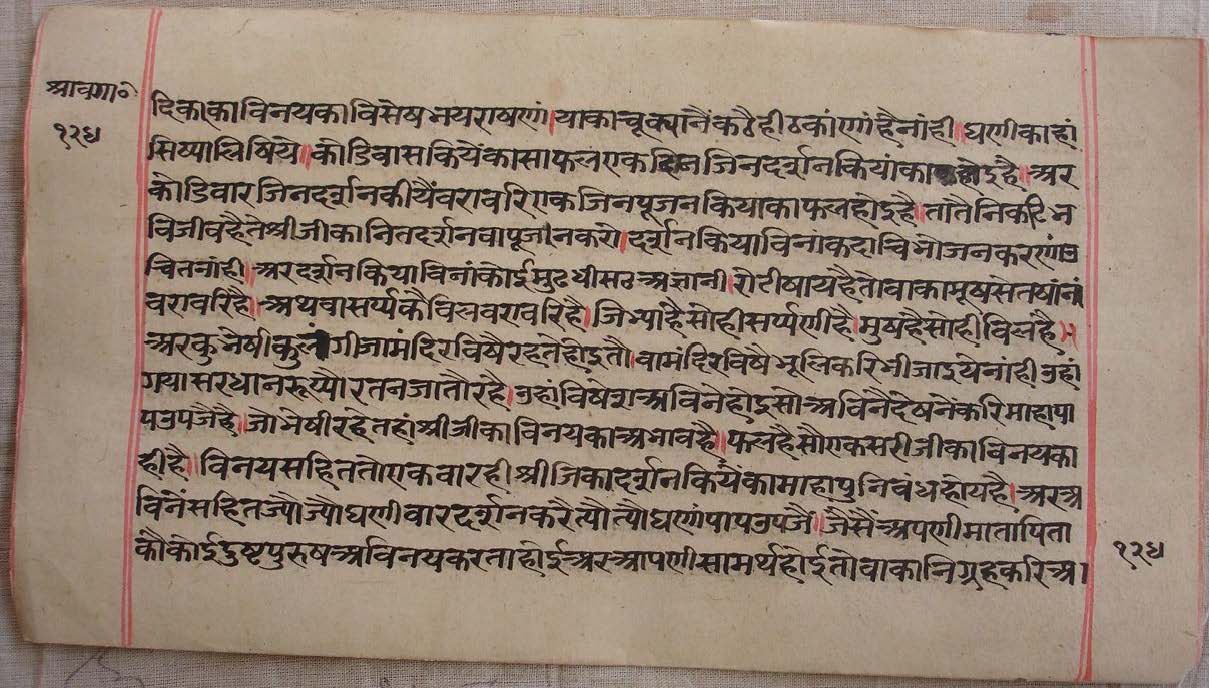 श्रावगा॰
१२४
दिकाका विनयका विसेष भय राषणां। याका चूक्यानैं कठै ही ठिकांणां है नांही॥ घणी काहां
सिष्या लिषिये॥ कोडि वास कियेंका सा फल एक दिन जिनदर्शन कियांका होइ है॥ अर
कोडि वार जिनदर्शन कीयैं वरावरि एक जिनपूजन कियाका फल होइ है॥ तातैं निकटि भ
वि जीव है ते श्रीजीका नित दर्शन वा पूजन करो। दर्शन किया विनां कदाचि भोजन करणां उ
चित नांही॥ अर दर्शन किया विनां कोई मुढधी सठ अज्ञानी। रोटी षाय है तो वाका मूष सेतषांनां
वरावरि है॥ अथवा सर्प्पकै विल वरावरि है॥ जिभ्या है सो ही सर्प्पणी है॥ मुष है सो ही विल है॥
अर कुभेषी कुलंगी जा मंदिर विषै रहते होइ तौ। वा मंदिर विषै भूलि करि भी जाइये नांही उहां
गया सरधान रूप्यौ रतन जातौ रहै। उहां विषेश अविनै होइ सो अविनै देषनेंकरि माहापा
प उपजै है। जो भेषी रहै तहां श्रीजीका विनयका अभाव है॥ फल है सौ एक सरीजीका विनयका
ही है॥ विनय सहित तो एक वार ही श्रीजिका दर्शन कियेंका माहा पुनि वध होय है। अर अ
विनें सहित ज्यौ ज्यौ घणी वार दर्शन करै त्यौ त्यौ घणां पाप उपजै॥ जैसैं अपणी माता पिता
कौ कोई दुष्ट पुरुष अविनय करता होई अर आपणी सामर्थ होई तो वाका निग्रह करि अ।
१२४